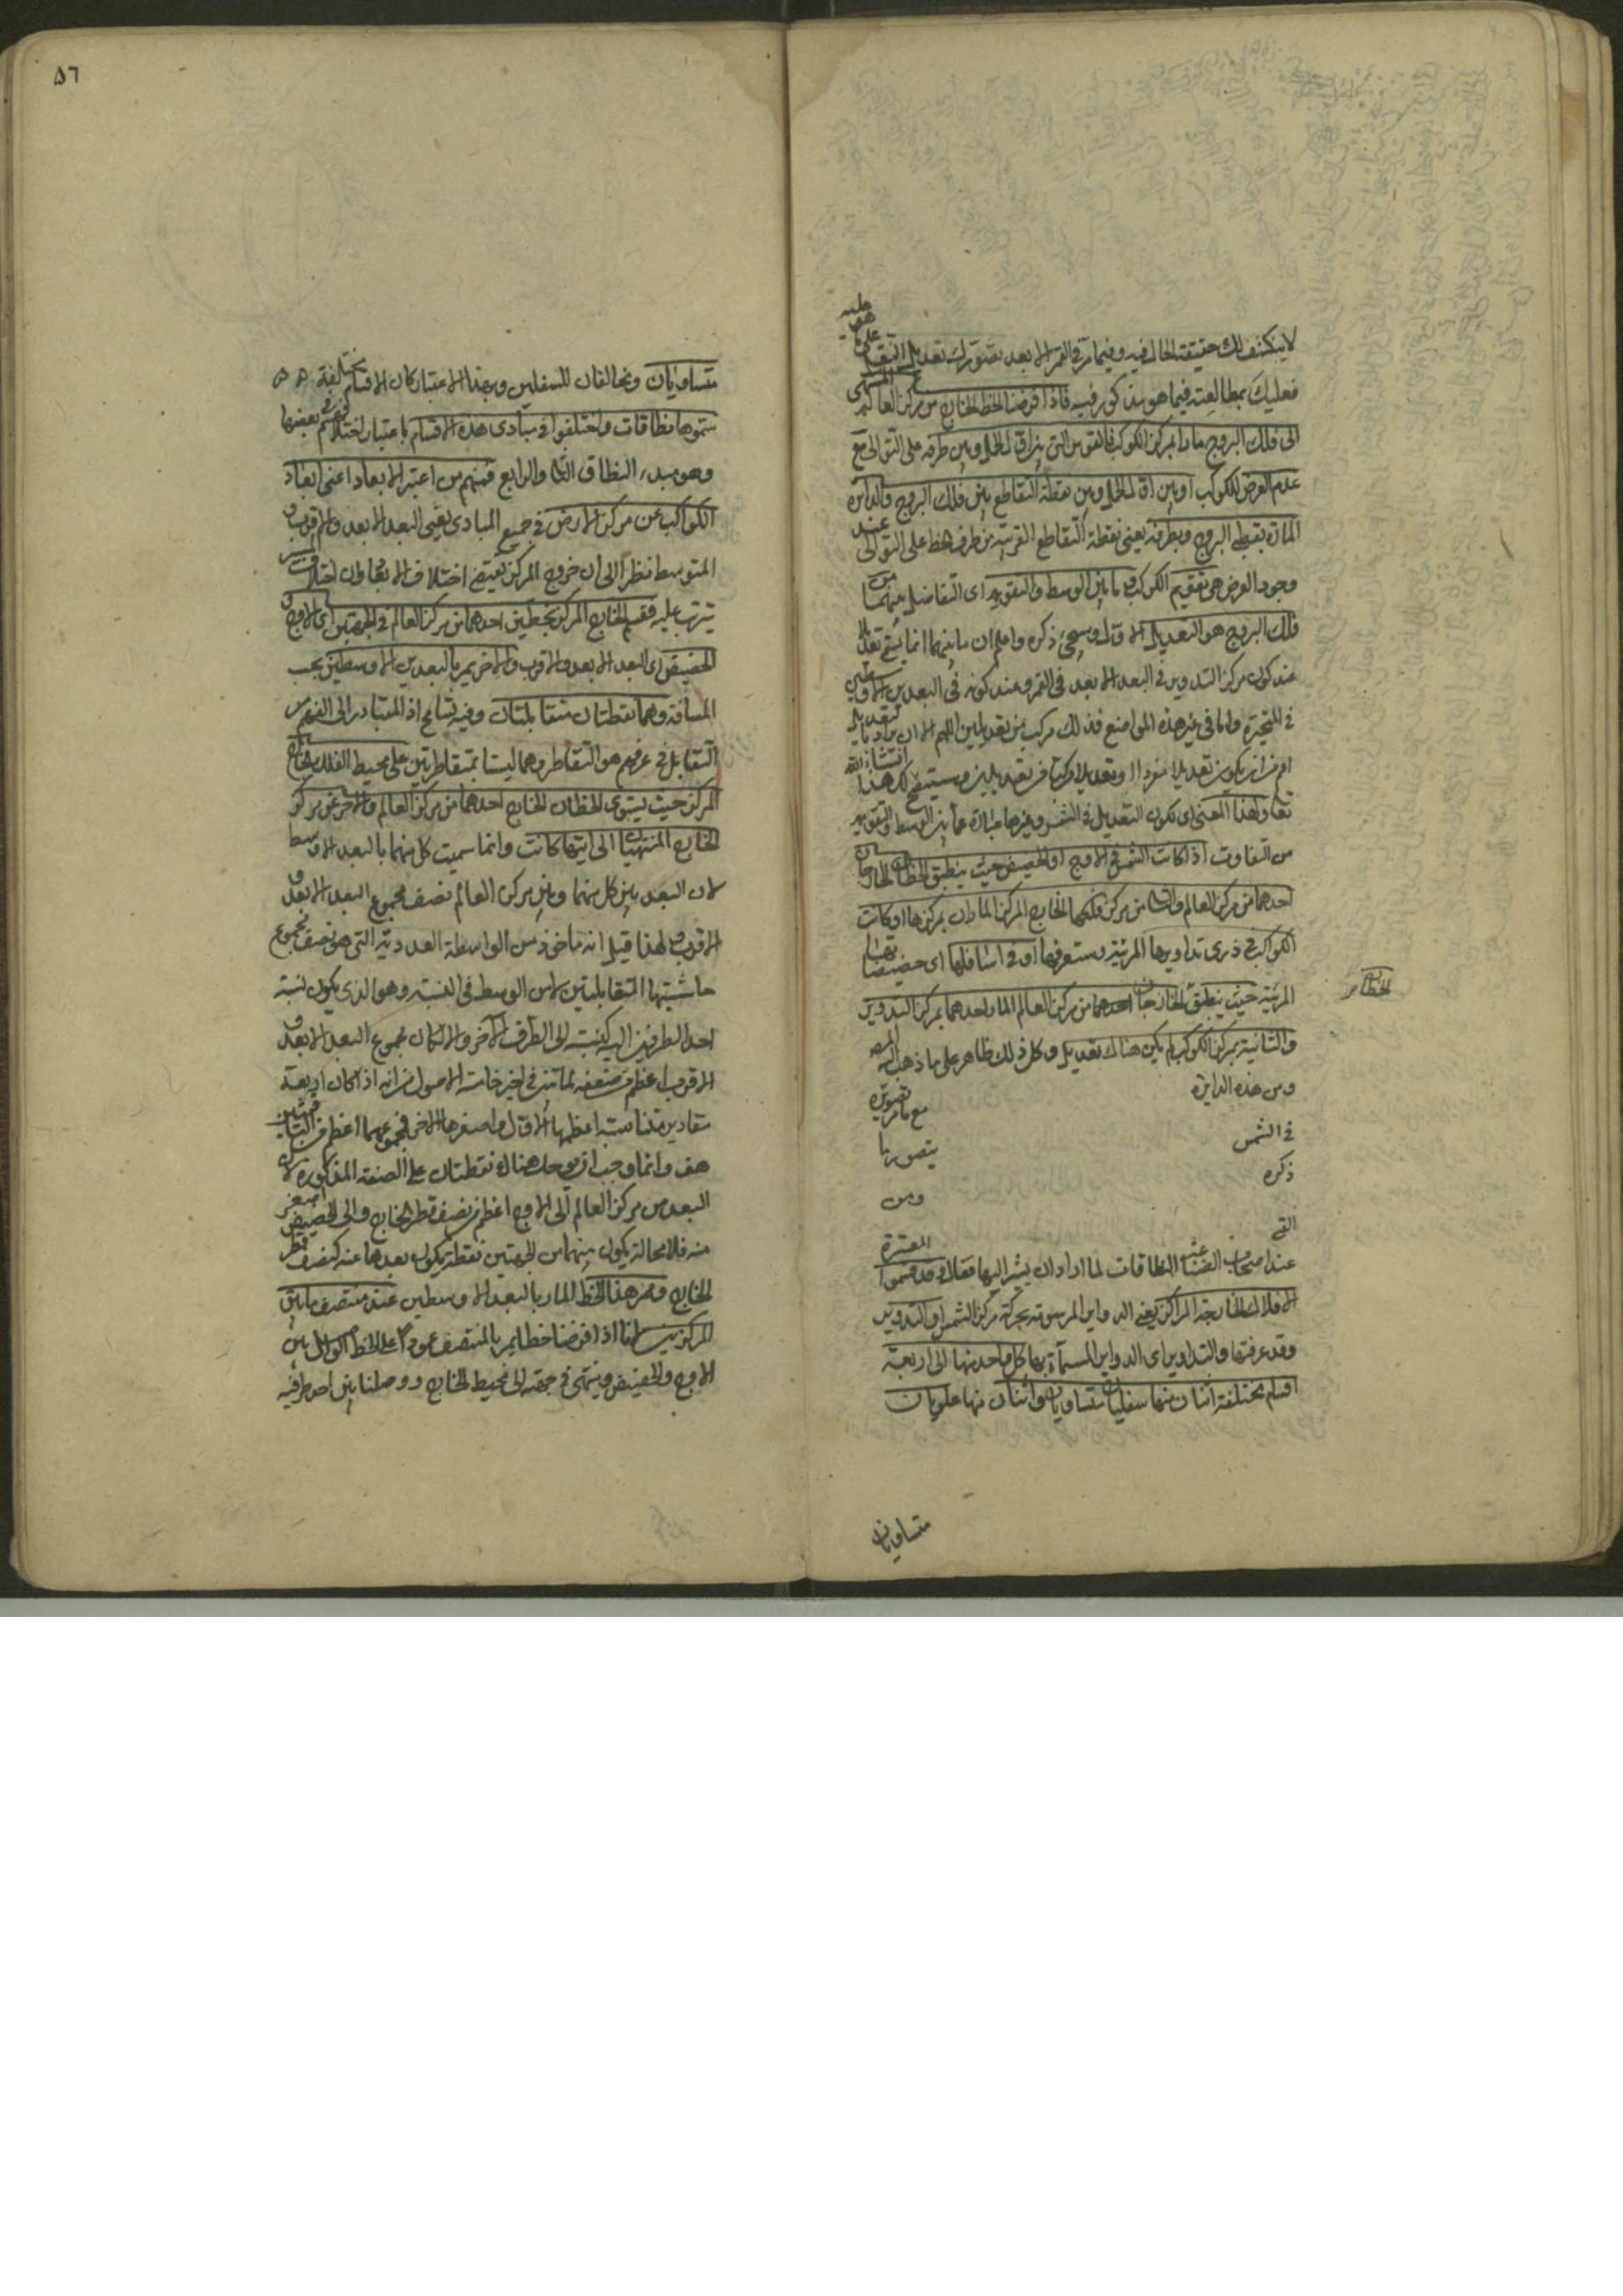 لا ينكشف لك حقيقة الحال فيه وفيما مر في القمر الا بعد تصورك تعديل النقل
فعليك بمطالعته فيما هو مذكور فيه فاذا فرضنا الخط الخارج من مركز العالم
الى فلك البروج مارا بمركز الكوكب فالقوس التي بين اول الحمل وبين طرفه على التوالى مع
عدم العرض للكوكب او بين اول الحمل وبين نقطة التقاطع بين فلك البروج والدائرة
المارة بقطبي البروج وبطرفه يعنى نقطة التقاطع القريبة من طرف الخط على التوالى عند
وجود العرض هى تقويم الكوكب وما بين الوسط والتقويم اى التفاضل بينهما من
فلك البروج هو التعديل الاول وسيجئ ذكره واعلم ان ما بينهما انما يتم
عند كون مركز التدوير في البعد الابعد في القمر وعند كونه في البعدين الاوسطين
في المتحيرة واما في غير هذه المواضع فذلك مركب من تعديلين اللهم الا ان
اعم من ان يكون تعديلا مفردا او تعديلا مركبا من تعديلين وسيتضح لك هذا انشاء الله
تعا ولهذا المعنى اى لكون التعديل في الشمس وغيرها عبارة عما بين الوسط والتقويم
من التفاوت اذا كانت الشمس في الاوج او الحضيض حيث ينطبق الخطان الخارجان
احدهما من مركز العالم والثانى من مركز فلكها الخارج المركز الماران بمركزها او كانت
الكواكب في ذرى تداويرها المرئية وستعرفها او في اسافلها اى حضيضاتها
المرئية حيث ينطبق الخارجان احدهما من مركز العالم المار احدهما بمركز التدوير
الخطان
والثانية بمركز الكوكب لم يكن هناك تعديل وكل ذلك ظاهر على ما ذهب اليه المص
ومن هذه الدايرة تصويره
في الشمس مع ما مر من
ذكره يتصور ما
القى ومن
عند اصحاب الصناعة النطاقات لما اراد ان يشير اليها فقال وقد قسموا المعتبرة
الافلاك الخارجة المراكز يعني الدواير المرسومة بحركة مركز الشمس او التدوير
وقد عرفتها والتداوير اى الدواير المسماة بها كل واحد منها الى اربعة
اقسام مختلفة اثنان منها سفليان متساويان واثنان منها علويان
متساويان
٥٦
متساويان ومخالفان للسفليين وبهذا الاعتبار كان الاقسام مختلفة
سموها نطاقات واختلفوا في مبادى هذه الاقسام باعتبار اختلافهم في بعضها
وهو مبدء النطاق الثانى والرابع فمنهم من اعتبر الابعاد اعنى ابعاد
الكواكب عن مركز الارض في جميع المبادى يعنى البعد الابعد والاقرب و
المتوسط نظرا الى ان خروج المركز يقتضى اختلاف الابعاد وان اختلاف المسير
يترتب عليه فقسم الخارج المركز بخطين احدهما من مركز العالم في الجهتين اى الاوج و
الحضيض اى البعد الابعد والاقرب والآخر يمر بالبعدين الاوسطين بحسب
المسافة وهما نقطتان متقابلتان وفيه تسامح اذ المتبادر الى الفهم من
التقابل في عرفهم هو التقاطر وهما ليستا بمتقاطرتين على محيط الفلك الخارج
المركز حيث يستوى الخطان الخارج احدهما من مركز العالم والآخر عن مركز
الخارج المنتهيان الى ايتهما كانت وانما سميت كل منهما بالبعد الاوسط
لان البعد بين كل منهما وبين مركز العالم نصف مجموع البعد الابعد و
الاقرب ولهذا قيل انه ماخوذ من الواسطة العددية التى هو نصف مجموع
حاشيتيها المتقابلتين لا من الوسط في النسبة وهو الذى يكون نسبة
احد الطرفين اليه كنسبته الى الطرف الآخر والا لكان مجموع البعد الابعد و
الاقرب اعظم من ضعفه لما تبين في اخير خامسة الاصول من انه اذا كان اربعة
مقادير متناسبة اعظمها الاول واصغرها الاخير فمجموعهما اعظم من الباقيين
هف وانما وجب ان يوجد هناك نقطتان على الصفة المذكورة لان
البعد من مركز العالم الى الاوج اعظم من نصف قطر الخارج والى الحضيض اصغر
منه فلا محالة يكون بينهما من الجهتين نقطة يكون بعدها عنه كنصف قطر
الخارج وممر هذا الخط المار بالبعد الاوسطين عند منتصف ما بين
المركزين لانا اذا فرضنا خطا يمر بالمنتصف عمودا على الخط الواصل بين
الاوج والحضيض وينتهى في جهته الى محيط الخارج ووصلنا بين احد طرفيه